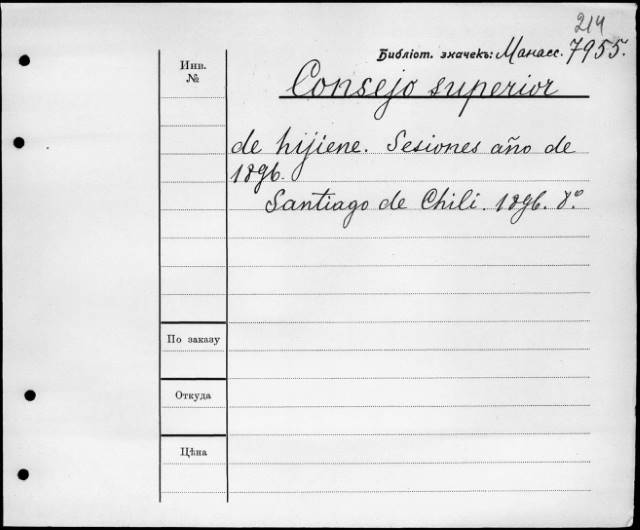 214
Библіот. значекъ: Манасс. 7955.
Инв.
№
Consejo superior
de hijiene. Sesiones año de
1896.
Santiago de Chili. 1896. 8º.
По заказу
Откуда
Цѣна